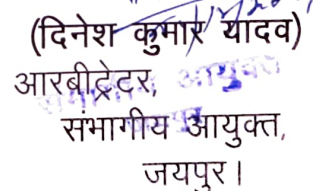 (दिनेश कुमार यादव)
आरबीट्रेटर,
संभागीय आयुक्त,
जयपुर।